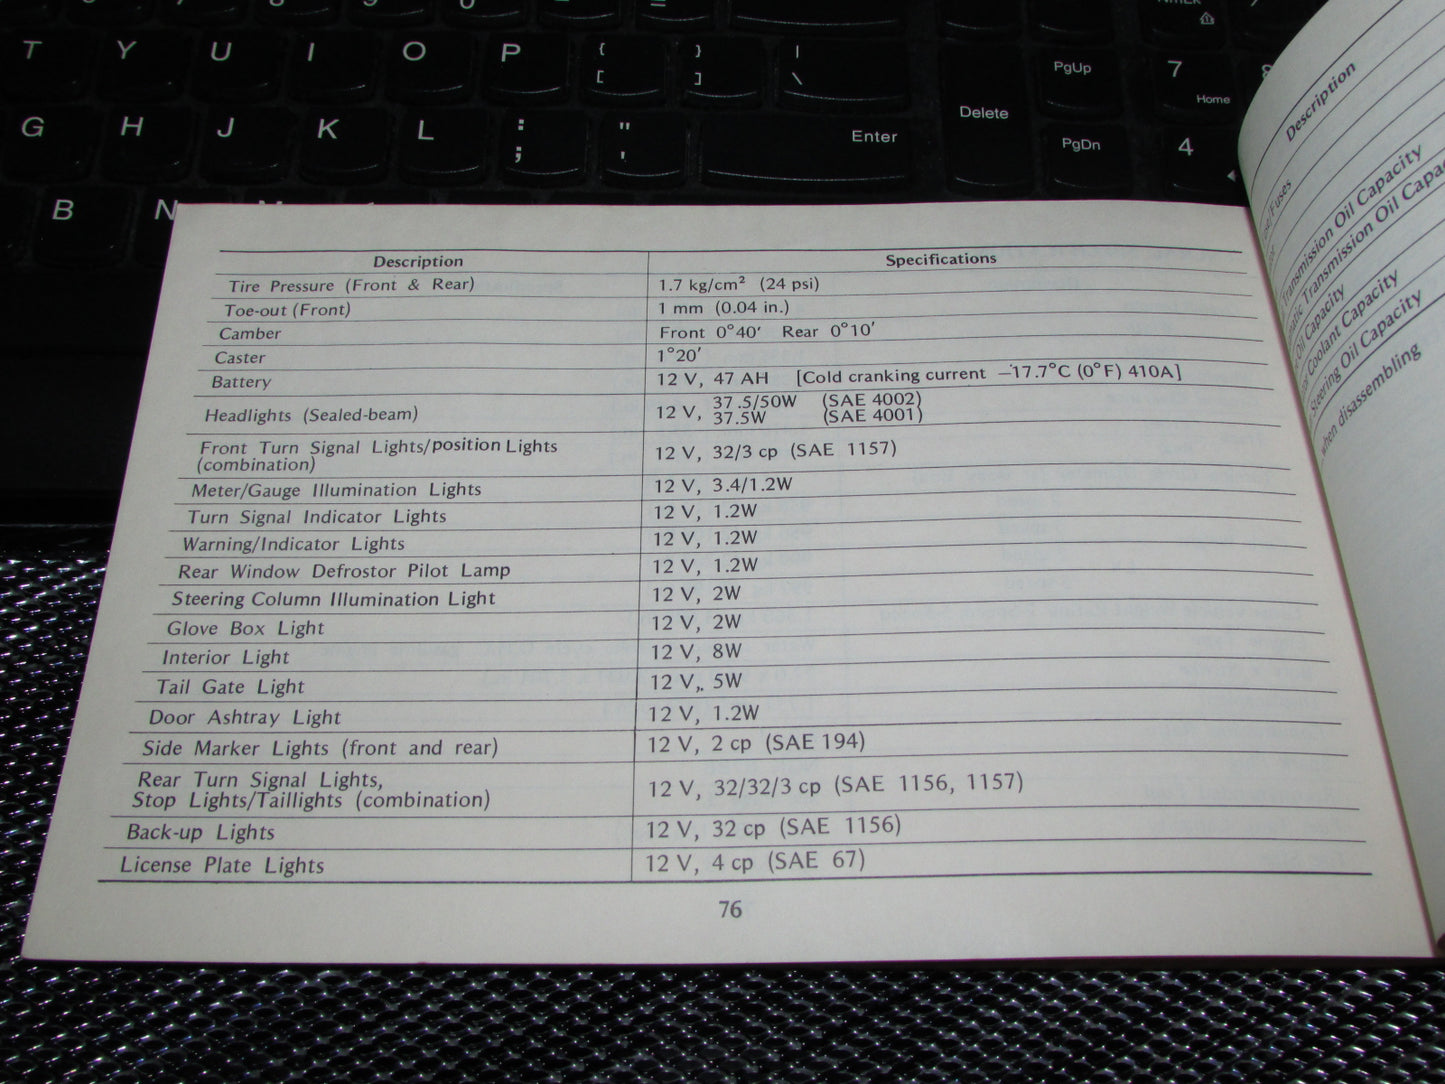 T Y U I O P { [ } ] | \
PgUp 7 Home
Delete
G H J K L : ; " ' Enter
PgDn 4
B N
Description Specifications
Tire Pressure (Front & Rear) 1.7 kg/cm² (24 psi)
Toe-out (Front) 1 mm (0.04 in.)
Camber Front 0°40′ Rear 0°10′
Caster 1°20′
Battery 12 V, 47 AH [Cold cranking current −17.7°C (0°F) 410A]
Headlights (Sealed-beam) 12 V, 37.5/50W (SAE 4002)
37.5W (SAE 4001)
Front Turn Signal Lights/position Lights
(combination) 12 V, 32/3 cp (SAE 1157)
Meter/Gauge Illumination Lights 12 V, 3.4/1.2W
Turn Signal Indicator Lights 12 V, 1.2W
Warning/Indicator Lights 12 V, 1.2W
Rear Window Defrostor Pilot Lamp 12 V, 1.2W
Steering Column Illumination Light 12 V, 2W
Glove Box Light 12 V, 2W
Interior Light 12 V, 8W
Tail Gate Light 12 V, 5W
Door Ashtray Light 12 V, 1.2W
Side Marker Lights (front and rear) 12 V, 2 cp (SAE 194)
Rear Turn Signal Lights,
Stop Lights/Taillights (combination) 12 V, 32/32/3 cp (SAE 1156, 1157)
Back-up Lights 12 V, 32 cp (SAE 1156)
License Plate Lights 12 V, 4 cp (SAE 67)
76
Description
Fuses
Transmission Oil Capacity
Transmission Oil
Oil Capacity
Coolant Capacity
Steering Oil Capacity
when disassembling